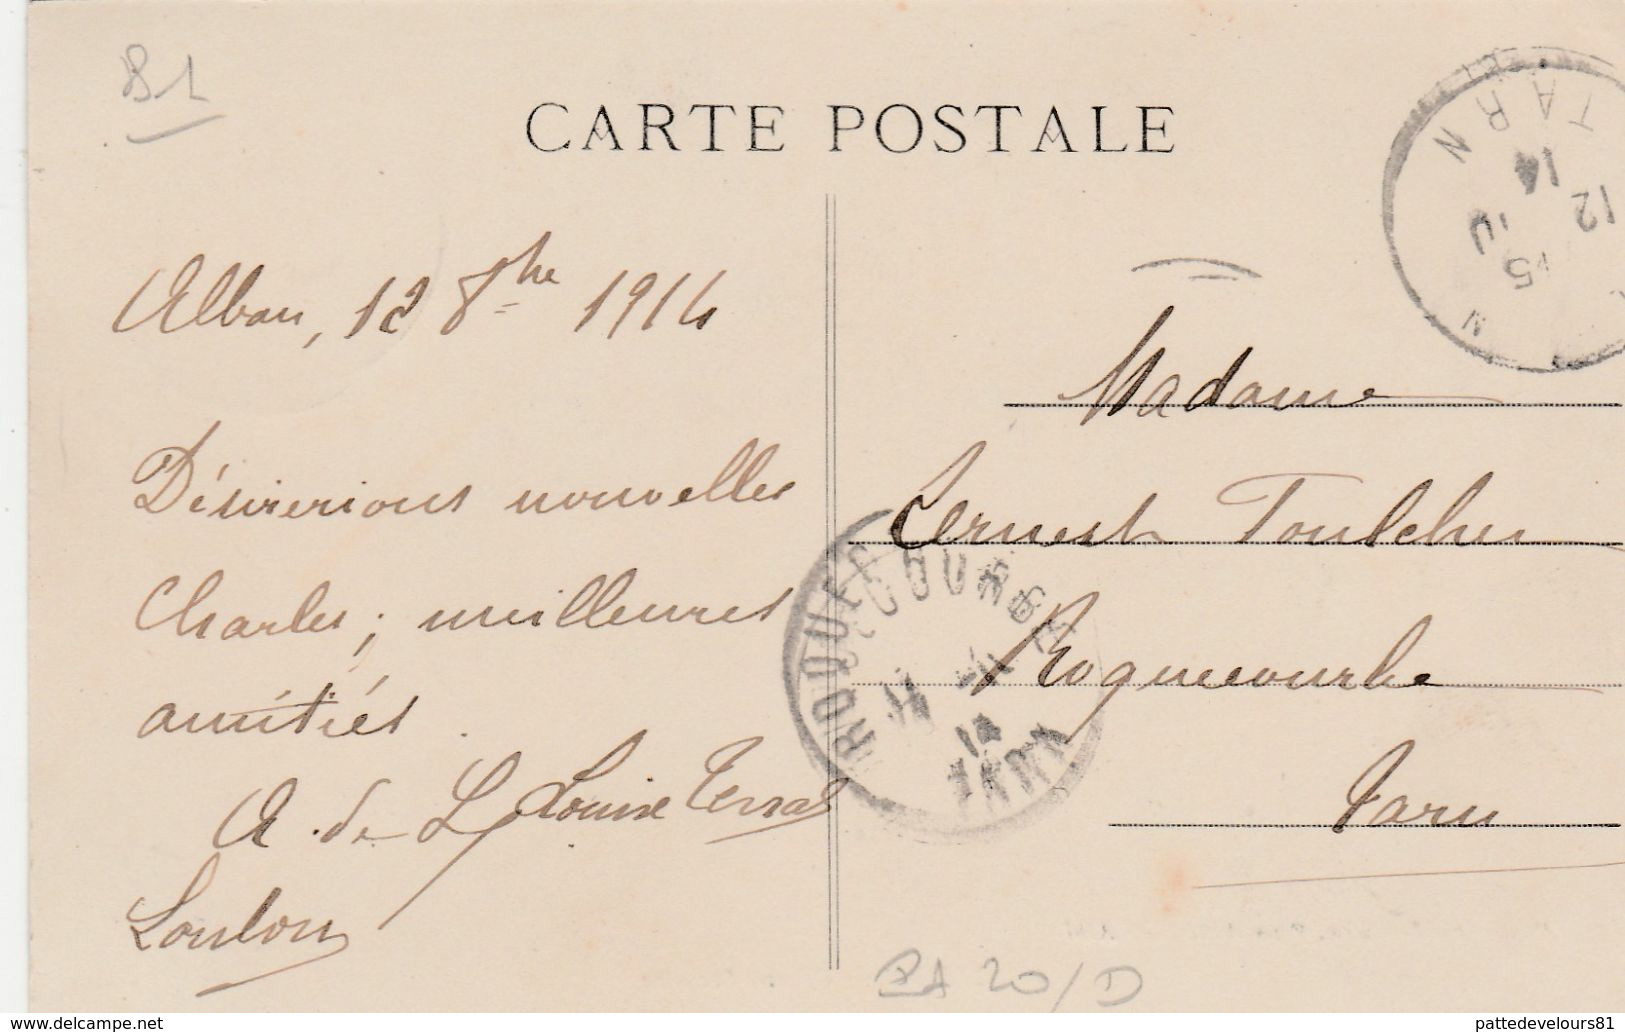 81
CARTE POSTALE
TARN
12
14
15
Alban, 12 8bre 1914
Désirerions nouvelles
Charles ; meilleures
amitiés.
A. de L Louise Terral
Loulou
Madame
Ernest
Roquecourbe
Tarn
ROQUECOURBE
14
TARN
20/D
delcampe.net
pattedevelours81